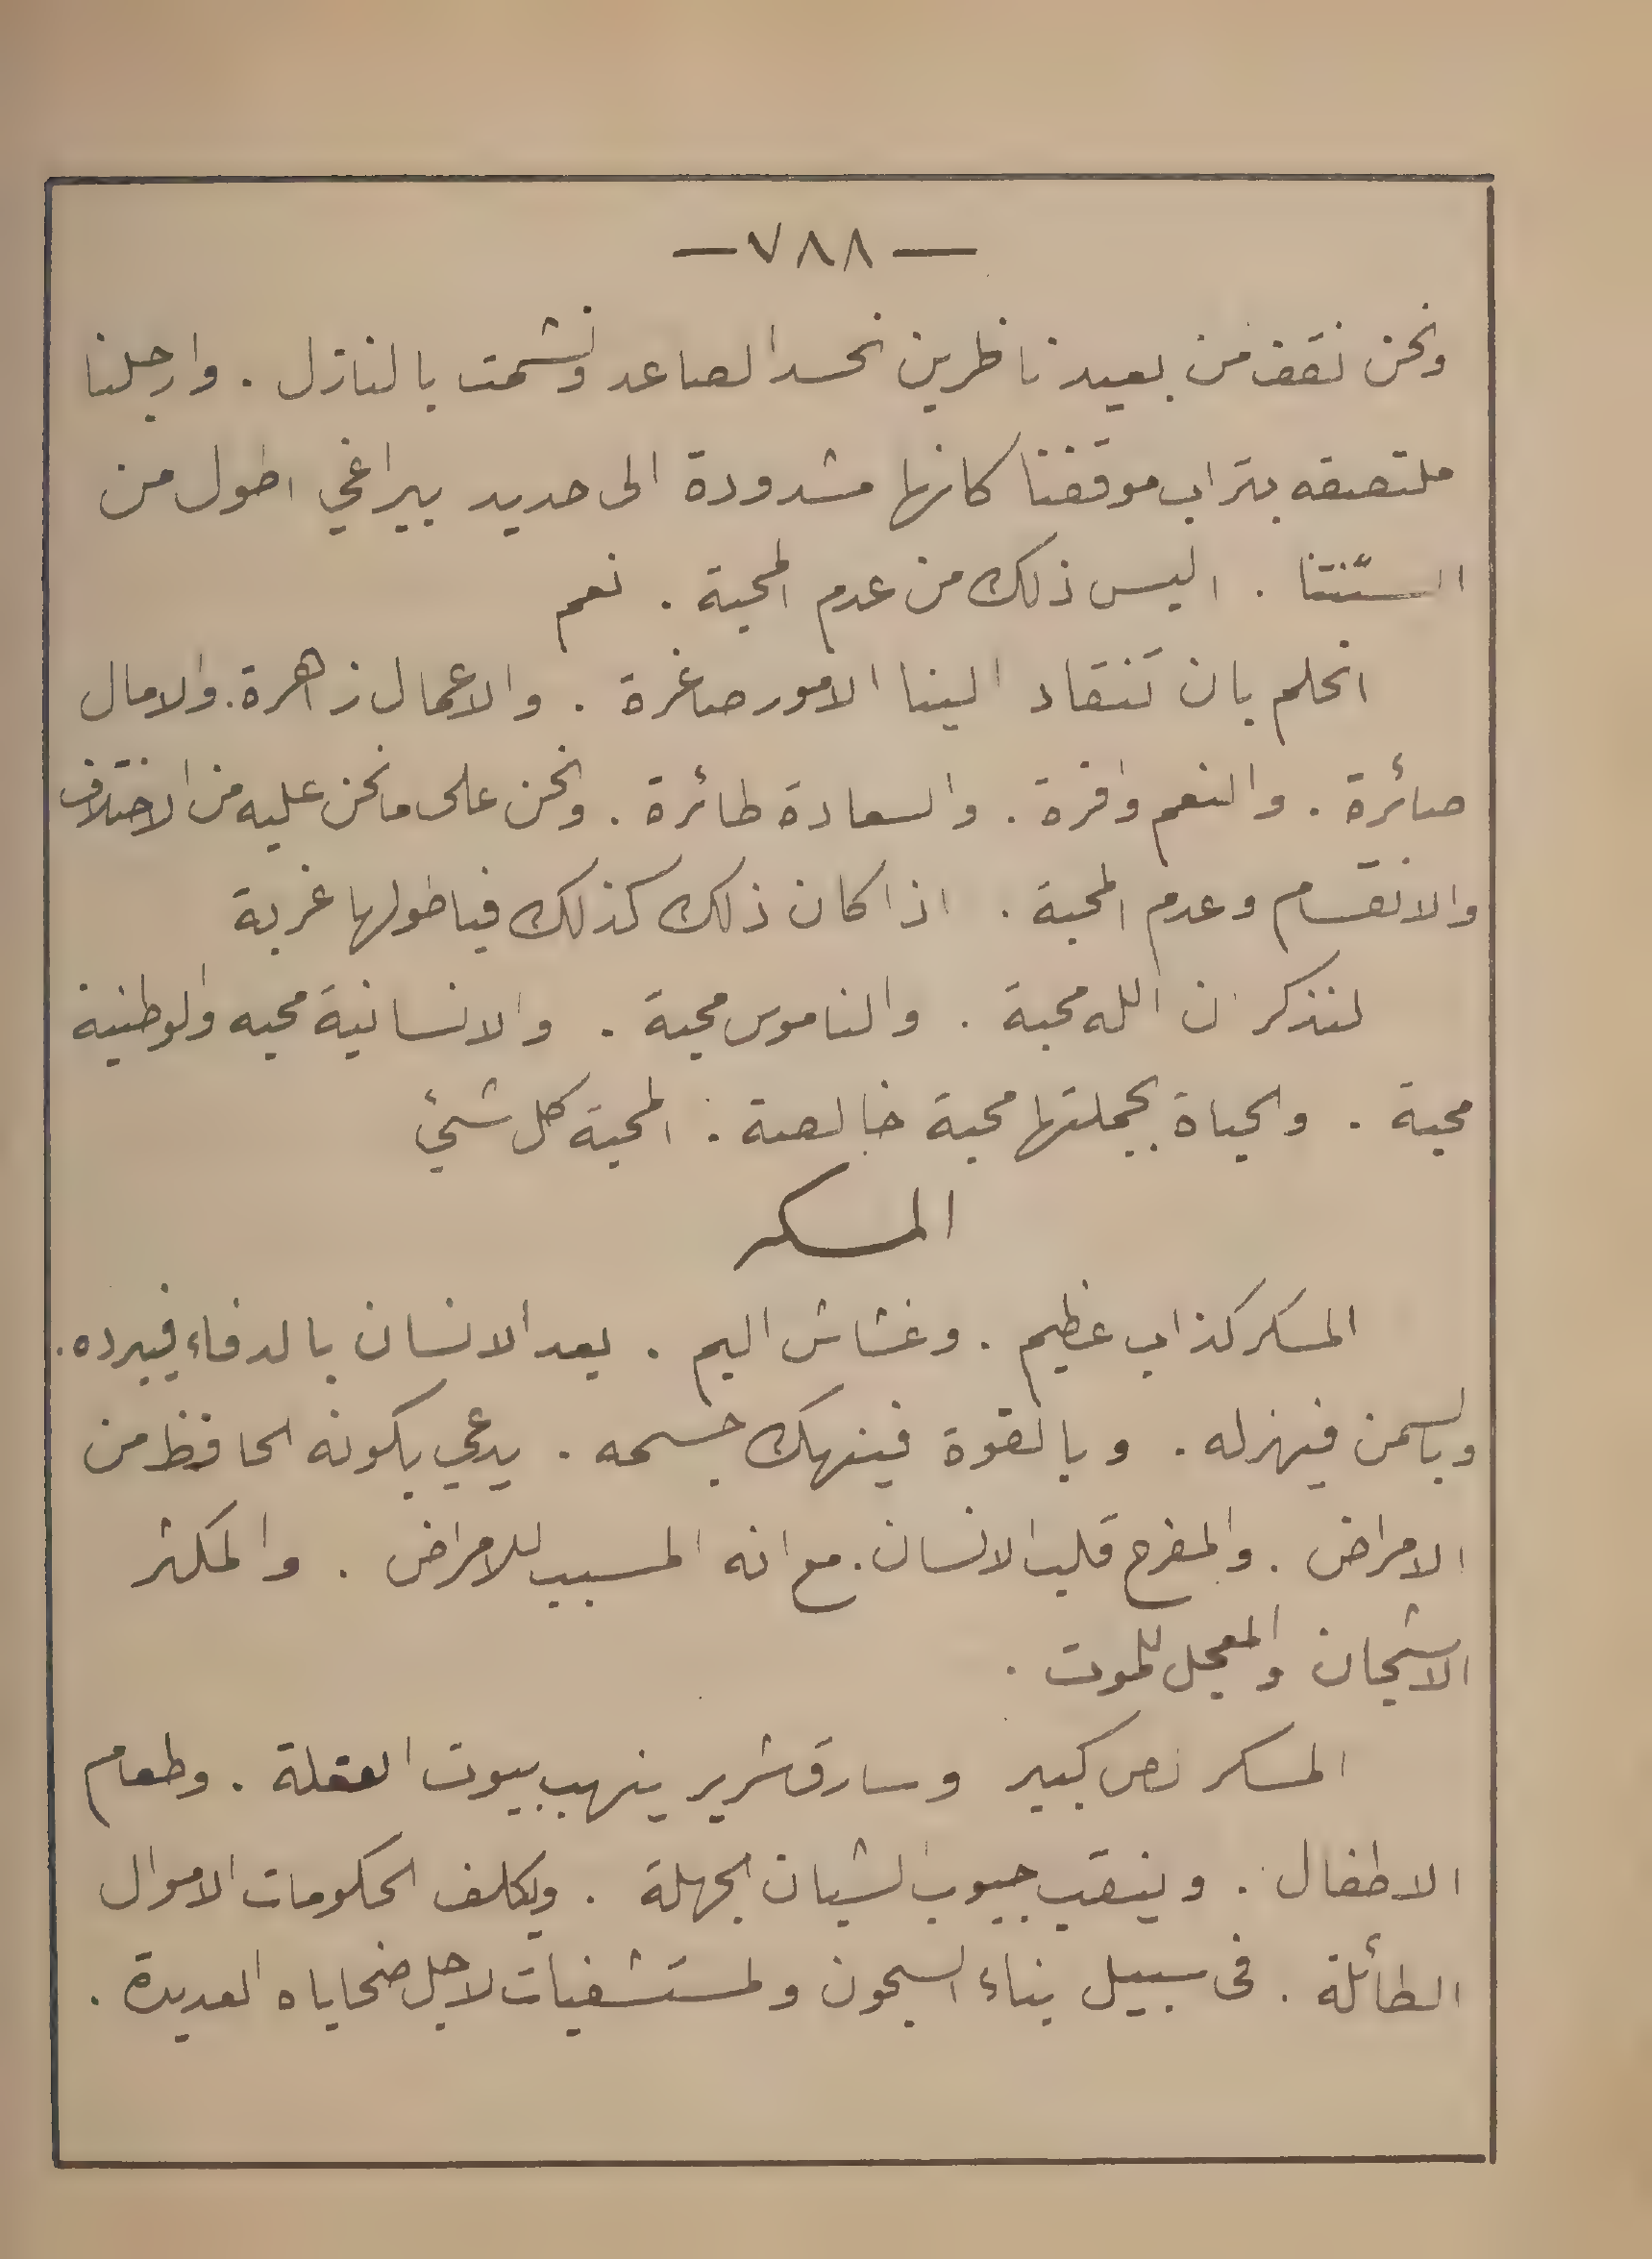 — ٧٨٨ —
ونحن نقف من بعيد ناظرين نحسد الصاعد ونشمت بالنازل . وارجلنا
ملتصقه بتراب موقفنا كانها مشدودة الى حديد ببراغي اطول من
السنّتنا . اليس ذلك من عدم المحبة . نعم
انحلم بان تنقاد الينا الامور صاغرة . والاعمال زاهرة . والامال
صائرة . والنعم وافرة . والسعادة طائرة . ونحن على مانحن عليه من الاختلاف
والانقسام وعدم المحبة . اذا كان ذلك كذلك فياطولها غربة
لنذكر ان الله محبة . والناموس محبة . والانسانية محبه والوطنية
محبة . والحياة بجملتها محبة خالصة : المحبة كل شيء
المسكر
المسكر كذاب عظيم . وغشاش اليم . يعد الانسان بالدفاء فيبرده .
وبالسمن فيهزله . وبالقوة فينهك جسمه . يدعي بكونه الحافظ من
الامراض . والمفرح قلب الانسان . مع انه المسبب للامراض . والمكثر
الاشجان والمعجل للموت .
المسكر لص كبير وسارق شرير ينهب بيوت العقلة . وطعام
الاطفال . وينقب جيوب الشبان الجهلة . ويكلف الحكومات الاموال
الطائلة . فى سبيل بناء السجون ولمستشفيات لاجل ضحاياه العديدة .